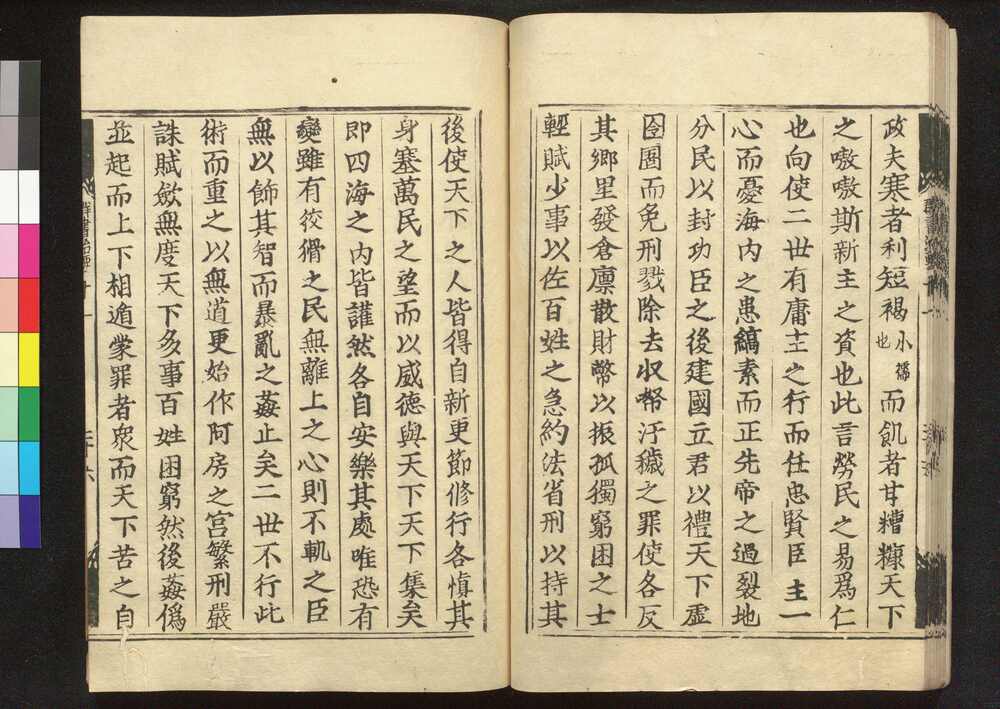 政夫寒者利短褐小襦也而飢者甘糟糠天下
之嗷嗷斯新主之資也此言勞民之易爲仁
也向使二世有庸主之行而任忠賢臣主一
心而憂海內之患縞素而正先帝之過裂地
分民以封功臣之後建國立君以禮天下虛
囹圄而免刑戮除去收帑汙穢之罪使各反
其鄉里發倉廩散財幣以振孤獨窮困之士
輕賦少事以佐百姓之急約法省刑以持其
後使天下之人皆得自新更節修行各愼其
身塞萬民之望而以威德與天下天下集矣
卽四海之內皆讙然各自安樂其處唯恐有
變雖有狡猾之民無離上之心則不軌之臣
無以飾其智而暴亂之姦止矣二世不行此
術而重之以無道更始作阿房之宮繁刑嚴
誅賦斂無度天下多事百姓困窮然後姦僞
並起而上下相遁蒙罪者衆而天下苦之自
群書治要十一